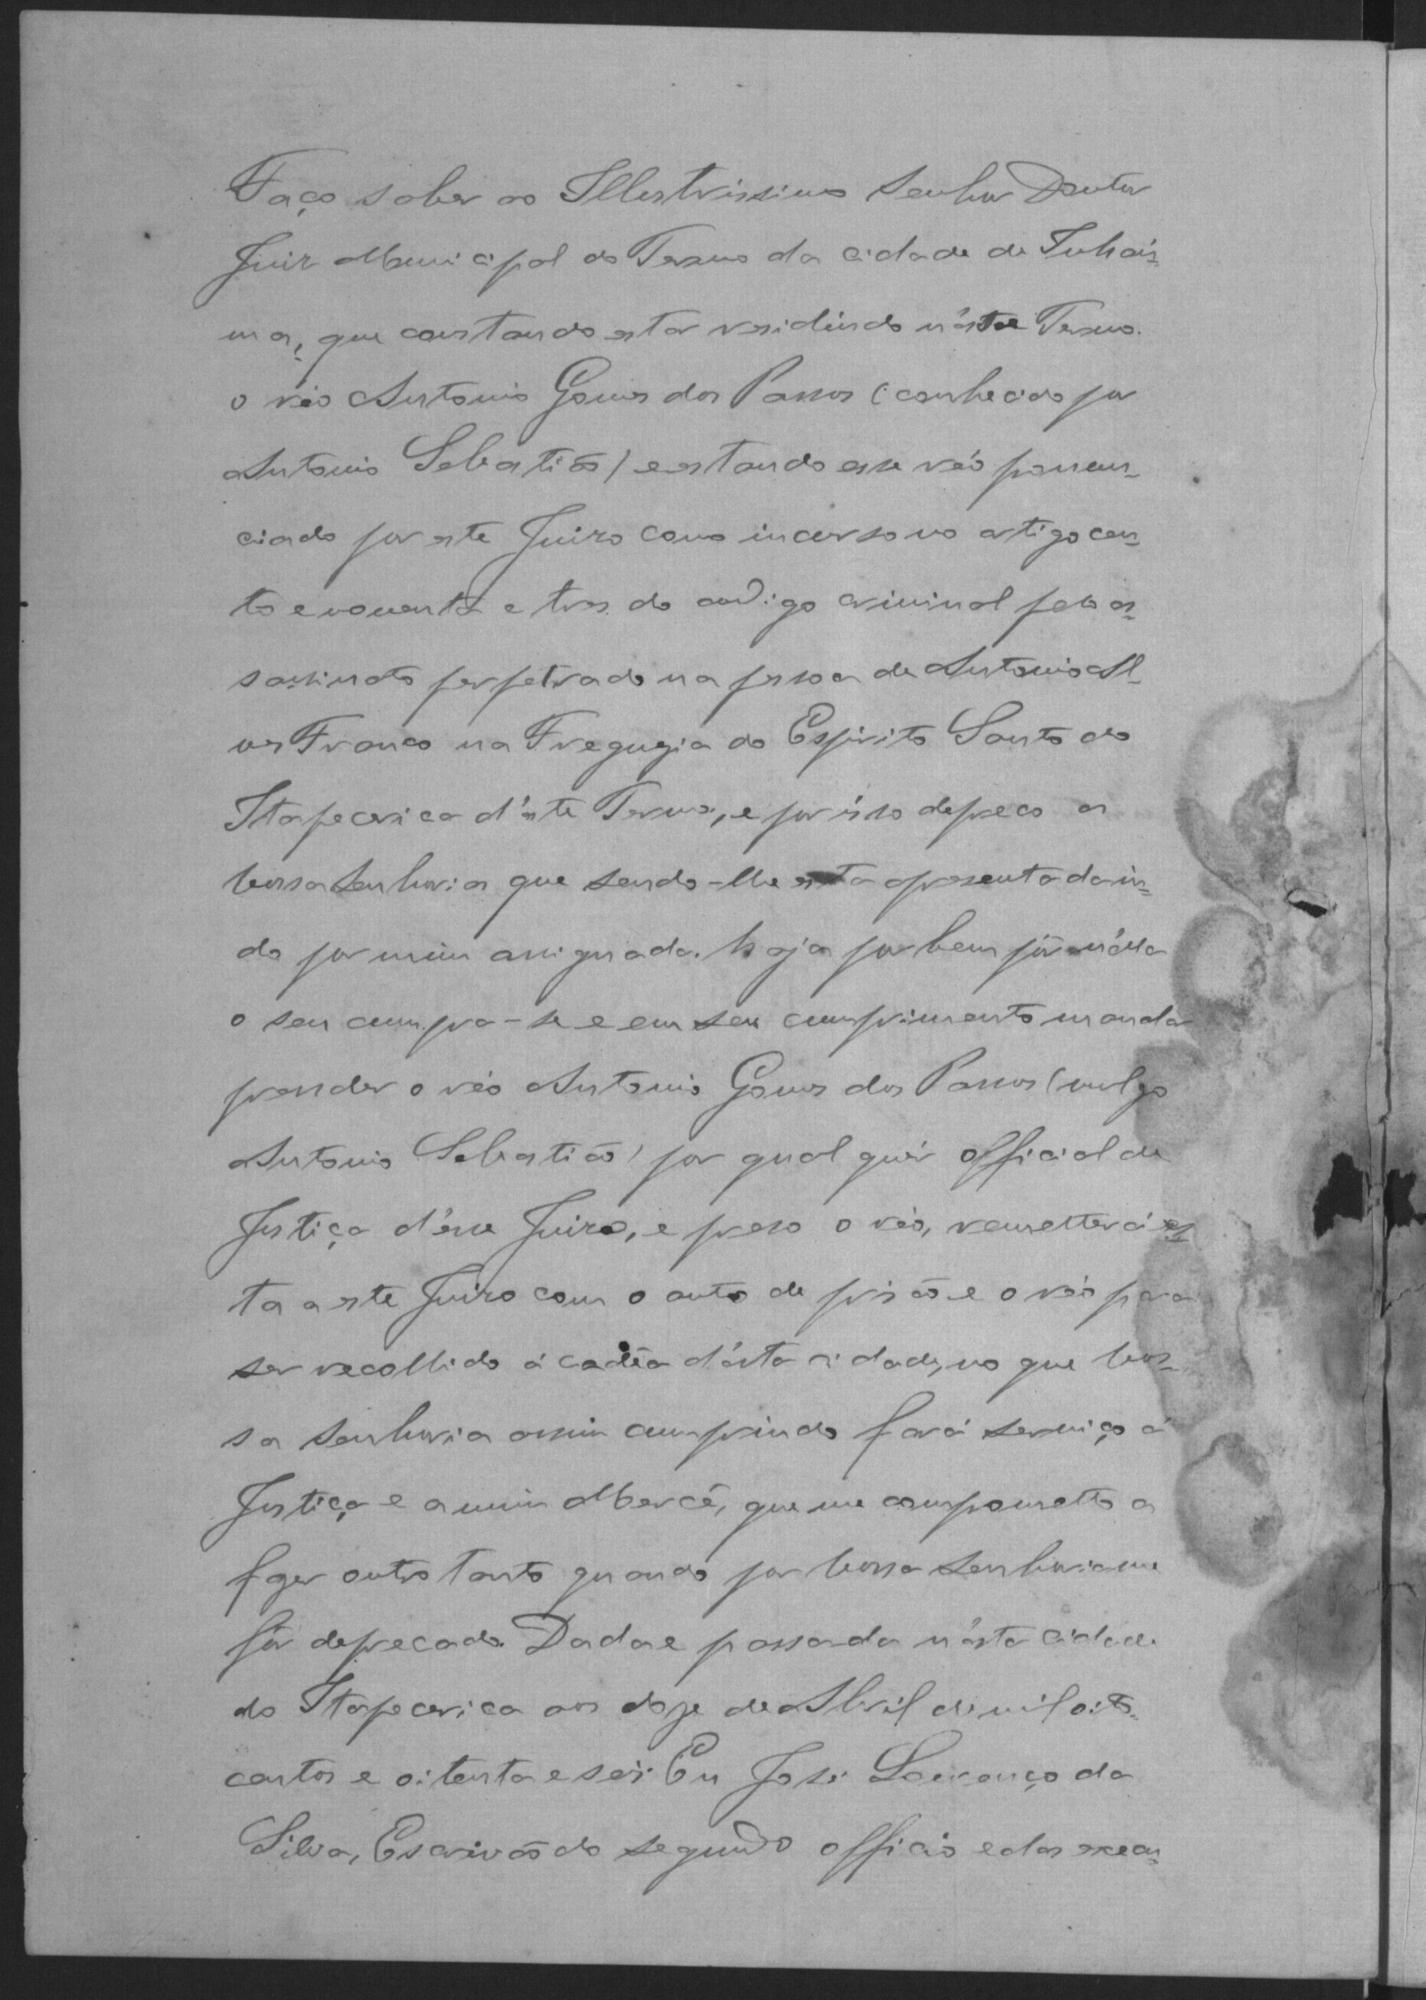 Faço saber ao Illustrissimo Senhor Doutor
Juiz Municipal do Termo da cidade de Inhaú-
ma, que constando estar residindo n'éste Termo
o réo Antonio Gomes dos Passos (conhecido por
Antonio Sebastião) e estando esse réo pronun-
ciado por este Juizo como incurso no artigo cen-
to e noventa e tres do codigo criminal pelo as-
sassinato perpetrado na pessoa de Antonio Al-
ves Franco na Freguezia do Espirito Santo do
Itapecerica d'éste Termo, e por isso depreco a
Vossa Senhoria que sendo-lhe esta apresentada in-
do por mim assignada. haja por bem pôr n'élla
o seu cumpra-se e em seu cumprimento mandar
prender o réo Antonio Gomes dos Passos (vulgo
Antonio Sebastião) por qualquér official de
Justiça d'ésse Juizo, e preso o réo, remetterá es-
ta a este Juizo com o auto de prisão e o réo para
ser recolhido á cadêa d'ésta cidade, no que Vos-
sa Senhoria assim cumprindo fará serviço á
Justiça e a mim Mercê, que me comprometto a
fazer outro tanto quando por Vossa Senhoria me
fôr deprecado. Dada e passada n'ésta cidade
do Itapecerica aos doze de Abril de mil oito-
centos e oitenta e seis Eu José Lourenço da
Silva, Escrivão do segundo officio e das execu-